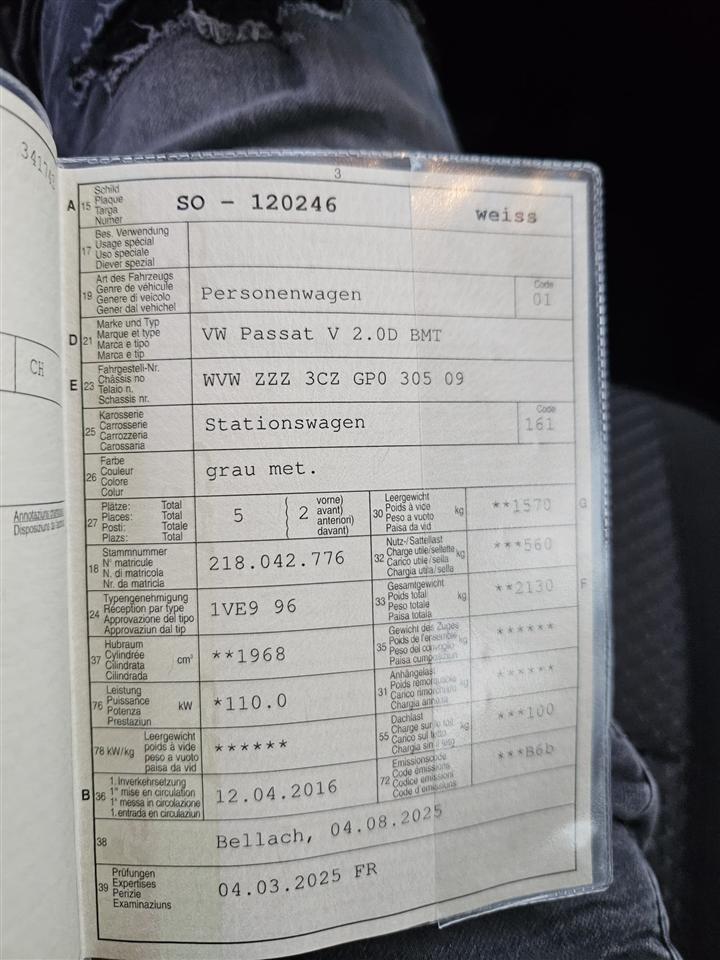 341742
CH
3
A 15 Schild
Plaque
Targa
Numer
SO - 120246
weiss
17 Bes. Verwendung
Usage spécial
Uso speciale
Diever spezial
19 Art des Fahrzeugs
Genre de véhicule
Genere di veicolo
Gener dal vehichel
Personenwagen
Code
01
D 21 Marke und Typ
Marque et type
Marca e tipo
Marca e tip
VW Passat V 2.0D BMT
E 23 Fahrgestell-Nr.
Châssis no
Telaio n.
Schassis nr.
WVW ZZZ 3CZ GP0 305 09
25 Karosserie
Carrosserie
Carrozzeria
Carossaria
Stationswagen
Code
161
26 Farbe
Couleur
Colore
Colur
grau met.
27 Plätze: Total
Places: Total
Posti: Totale
Plazs: Total
5
2
vorne)
avant)
anteriori)
davant)
30 Leergewicht
Poids à vide
Peso a vuoto
Paisa da vid
kg
**1570
G
18 Stammnummer
N° matricule
N. di matricola
Nr. da matricla
218.042.776
32 Nutz-/Sattellast
Charge utile/sellette
Carico utile/sella
Chargia utila/sella
kg
***560
24 Typengenehmigung
Réception par type
Approvazione del tipo
Approvaziun dal tip
1VE9 96
33 Gesamtgewicht
Poids total
Peso totale
Paisa totala
kg
**2130
F
37 Hubraum
Cylindrée
Cilindrata
Cilindrada
cm³
**1968
35 Gewicht des Zuges
Poids de l'ensemble
Peso del convoglio
Paisa cumposiziun
kg
******
76 Leistung
Puissance
Potenza
Prestaziun
kW
*110.0
31 Anhängelast
Poids remorquable
Carico rimorchiato
Chargia annexa
kg
******
78 kW/kg
Leergewicht
poids à vide
peso a vuoto
paisa da vid
******
55 Dachlast
Charge sur le toit
Carico sul tetto
Chargia sin il tetg
kg
***100
B 36 1. Inverkehrsetzung
1re mise en circulation
1a messa in circolazione
1. entrada en circulaziun
12.04.2016
72 Emissionscode
Code émissions
Codice emissioni
Code d'emissiuns
***B6b
38
Bellach, 04.08.2025
39 Prüfungen
Expertises
Perizie
Examinaziuns
04.03.2025 FR